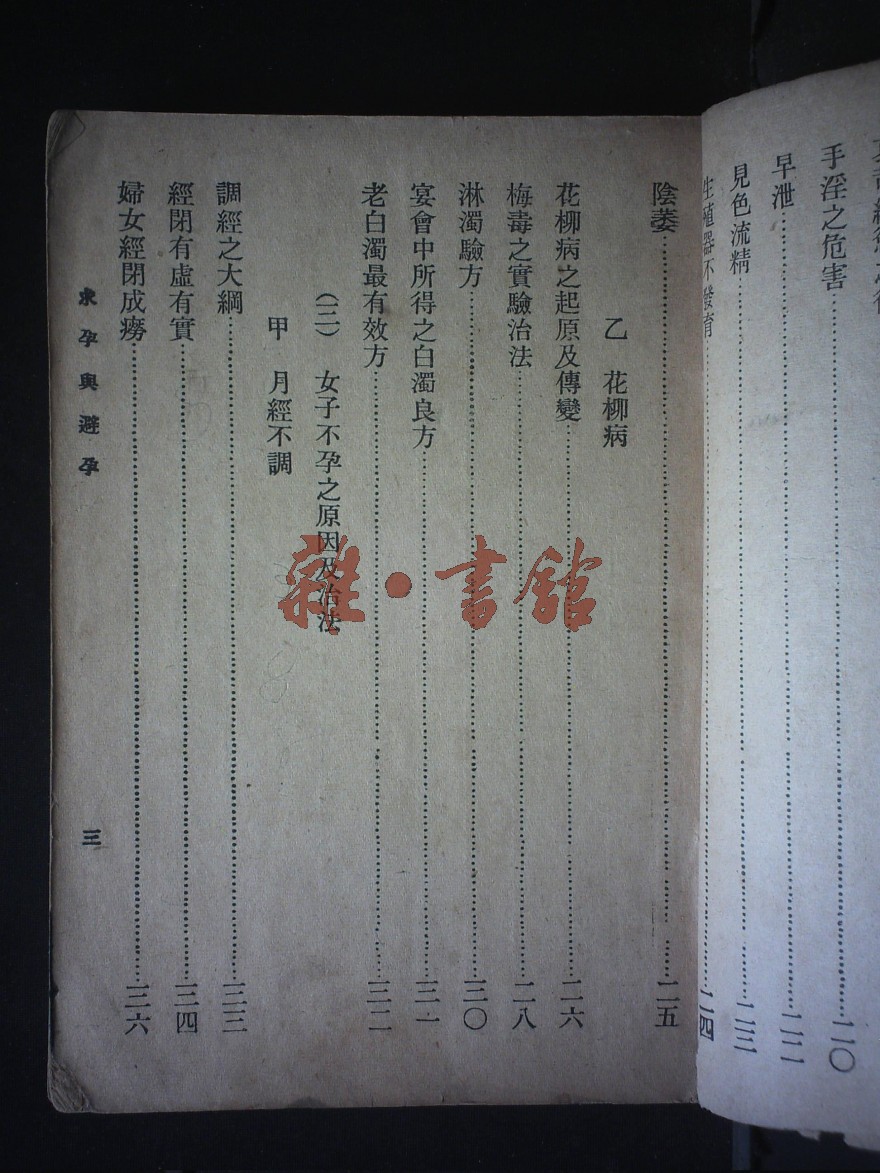 手淫之危害……二〇
早泄……二二
見色流精……二三
生殖器不發育……二四
陰萎……二五
乙　花柳病
花柳病之起原及傳變……二六
梅毒之實驗治法……二八
淋濁驗方……三〇
宴會中所得之白濁良方……三一
老白濁最有效方……三二
（三）　女子不孕之原因及治法
甲　月經不調
調經之大綱……三三
經閉有虛有實……三四
婦女經閉成癆……三六
求孕與避孕
三
雜·書館